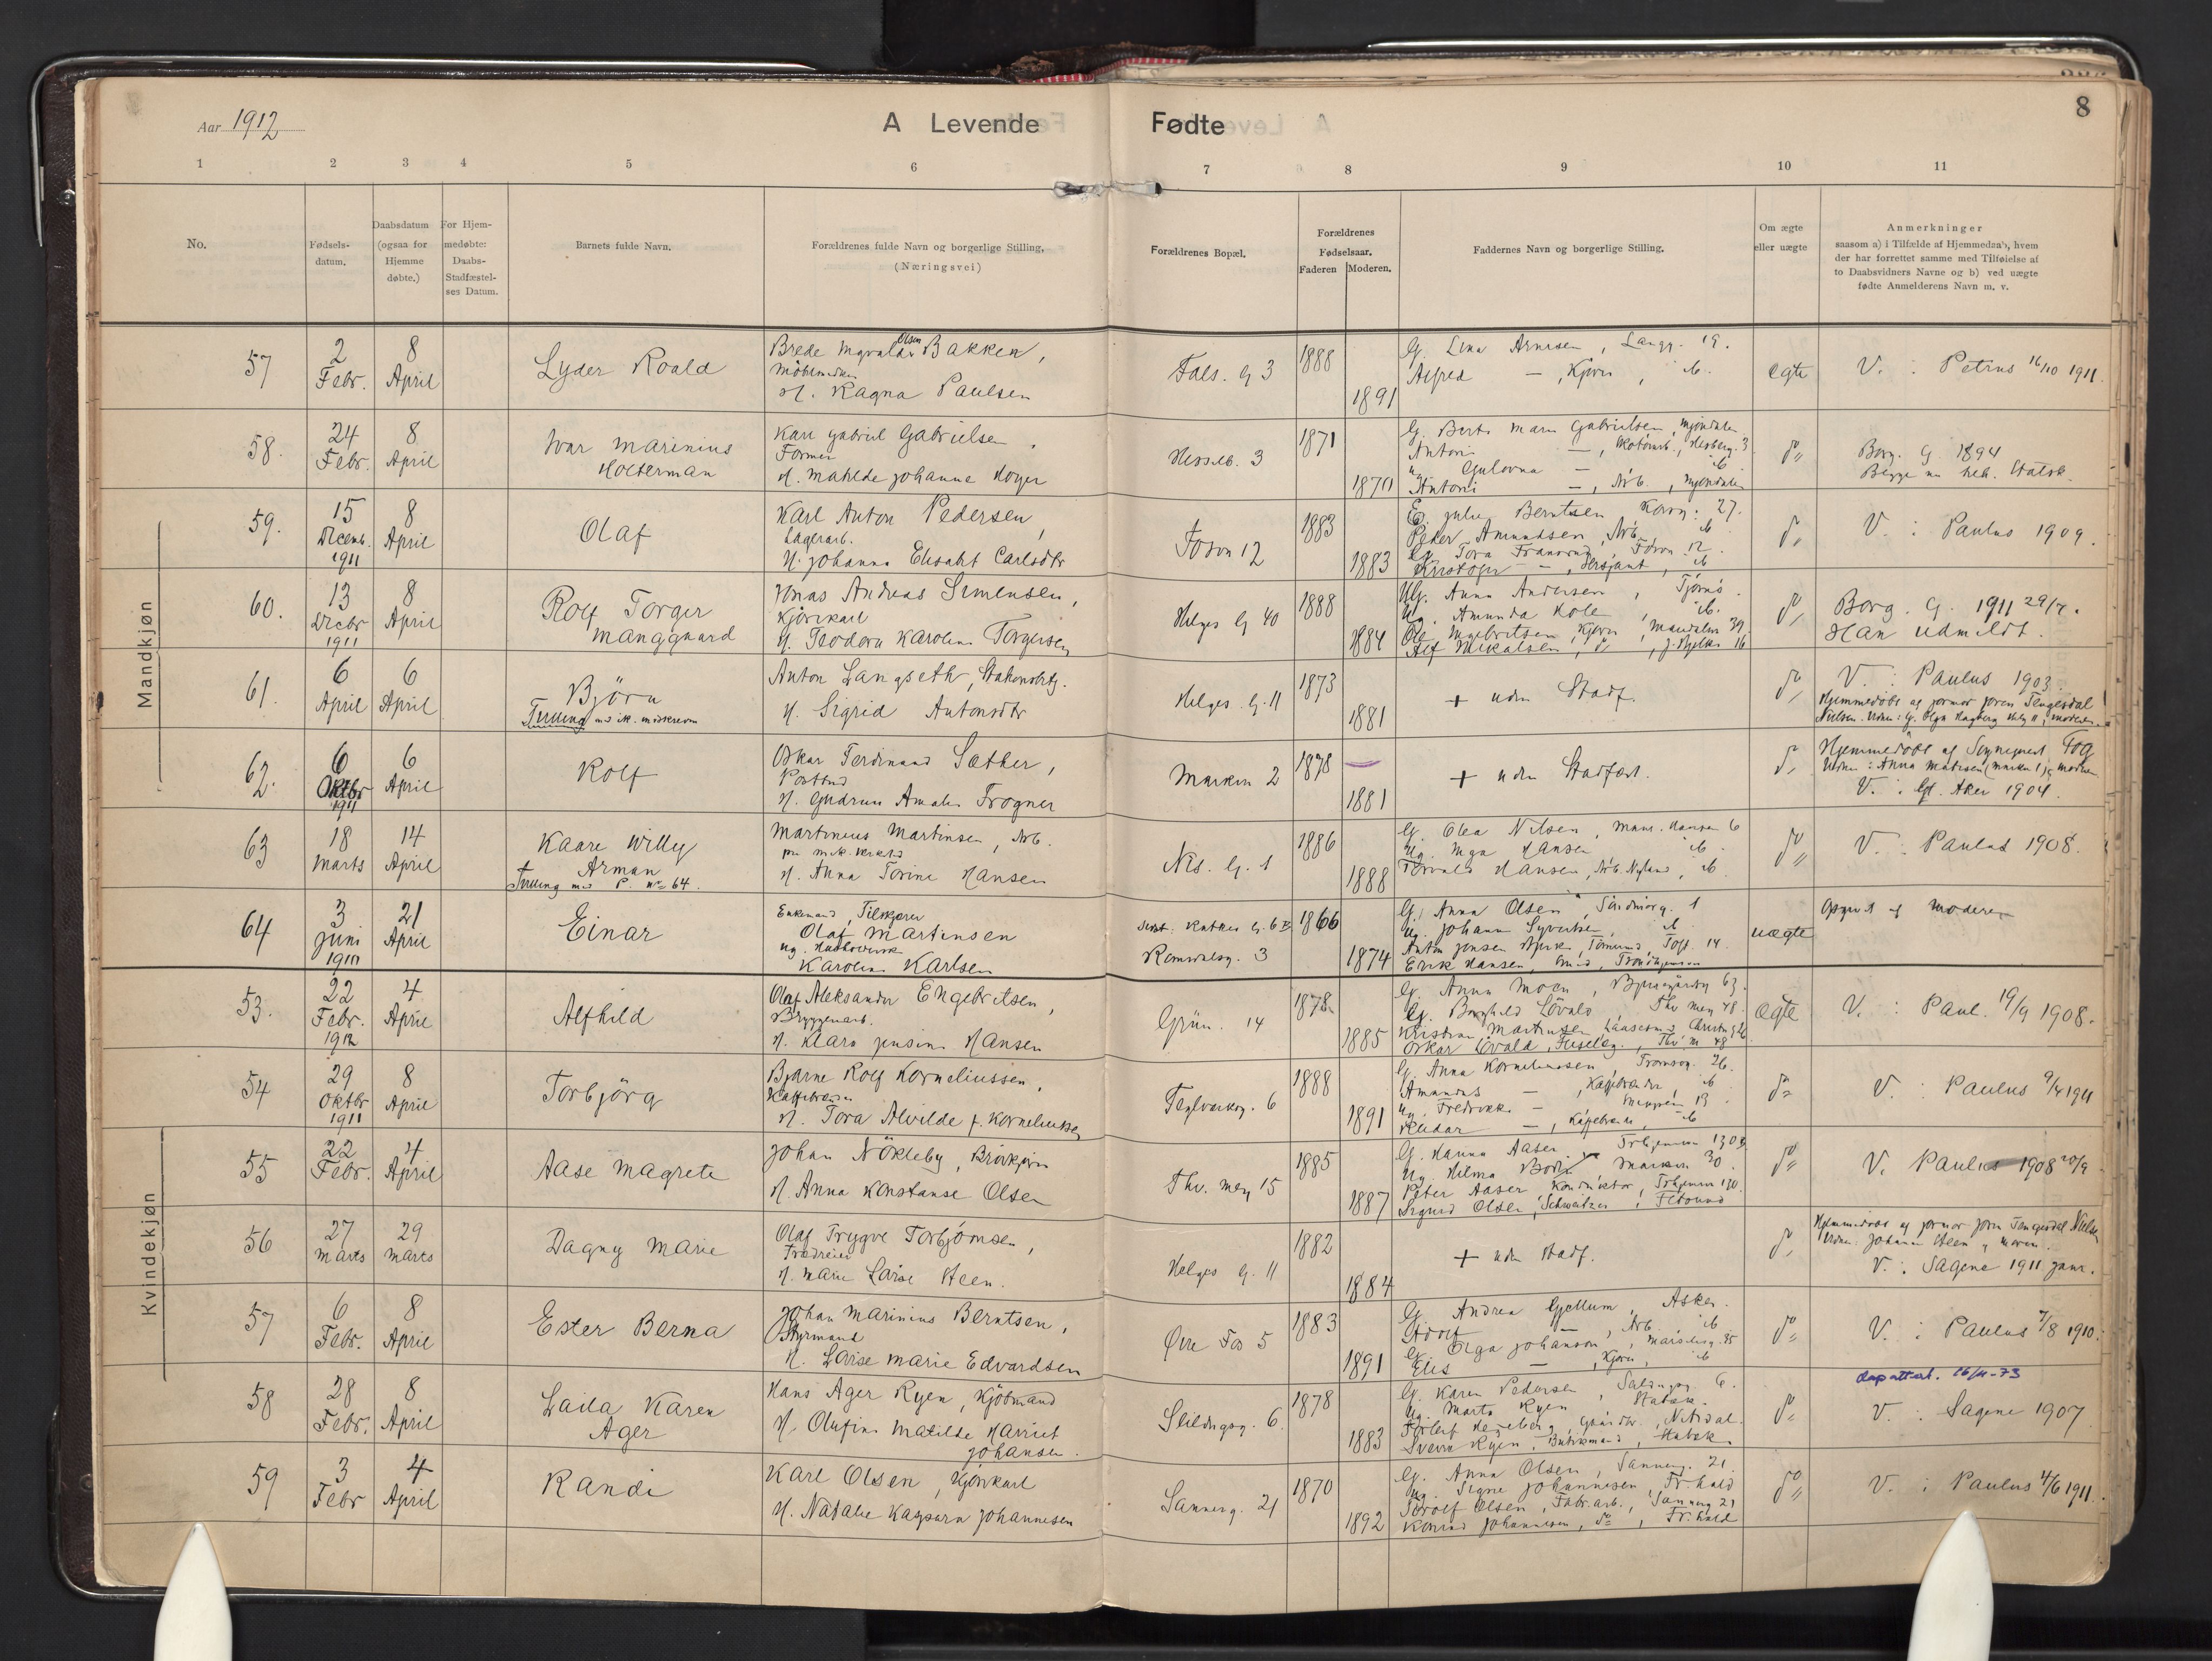 8
Aar 1912
A Levende Fødte
1 2 3 4 5 6 7 8 9 10 11
No.
Fødsels-
datum.
Daabsdatum
(ogsaa for
Hjemme
døbte.)
For Hjem-
medøbte:
Daabs-
Stadfæstel-
ses Datum.
Barnets fulde Navn.
Forældrenes fulde Navn og borgerlige Stilling.
(Næringsvei)
Forældrenes Bopæl.
Forældrenes
Fødselsaar.
Faderen Moderen.
Faddernes Navn og borgerlige Stilling.
Om ægte
eller uægte
Anmerkninger
saasom a) i Tilfælde af Hjemmedaab, hvem
der har forrettet samme med Tilføielse af
to Daabsvidners Navne og b) ved uægte
fødte Anmelderens Navn m. v.
Mandkjøn
57
2
Febr.
8
April
Lyder Roald
Brede Ingvald Olsen Bakken,
H. Ragna Paulsen
Fals. G 3
1888
1891
G. Lina Arnesen, Langg. 19.
Alfred — , Kjører, ib.
egte
V. : Petrus 16/10 1911.
58.
24
Febr.
8
April
Ivar Marinius
Holterman
Karl Gabriel Gabrielsen,
Former
H. Matilde Johanne Høyer
Hesselb. 3
1871
1870
G. Berte Marie Gabrielsen, Mjøndalen
Anton —
Antoni — , Arb., Mjøndalen
do
Borg. G. 1894
59.
15
Decemb.
1911
8
April
Olaf
Karl Anton Pedersen,
Lagerarb.
H. Johanna Elisabet Carlsdtr
Foson 12
1883
1883
E. Julie Berntsen 27.
Peder Amundsen, Arb. ib
Kristofer — , Sersjant, ib
do
V. : Paulus 1909.
60.
13
Decbr
1911
8
April
Rolf Torger
Manggaard
Jonas Andreas Simensen,
Kjørekarl
H. Teodora Karoline Torgersen
Helges G 40
1888
1884
Ug. Anna Andersen, Tjømø.
Ug. Amunda Hole, ib.
Ole Ingebritsen, Kjører, Mandalsg 39
Alf Mikalsen, do, J. Bjelkes 16
do
Borg. G. 1911 29/7.
Han udmeldt.
61.
6
April
6
April
Bjørn
Tvilling
Anton Langseth,
H. Sigrid Antonsdtr
Helges. G. 11
1873
1881
+ uden Stadf.
do
V. : Paulus 1903.
Hjemmedøbt af jormor Joren Tengesdal
Nielsen. Vidner: G. Olga Hagberg Helg 11, moderen
62.
6
Oktbr
1911
6
April
Rolf
Oskar Ferdinand Sæther,
Postbud
H. Gudrun Amalie Trogner
Marken 2
1878
1881
+ uden Stadfæst.
do
Hjemmedøbt af Sogneprest Fog
Vidner: Anna Mathisen (Marken 1) og moderen
V. : Gl. Aker 1904.
63
18
Marts
14
April
Kaare Willy
Arman
Tvilling med P. No 64.
Martinius Martinsen, Arb.
H. Anna Torine Hansen
Nls. G. 1
1886
1888
G. Olea Nilsen, 6
Ug. Inga Hansen ib.
Torvald Hansen, Arb. Nyland, ib
do
V. : Paulus 1908.
64
3
Juni
1910
21
April
Einar
Enkemand,
Olaf Martinsen
Ug.
Karoline Karlsen
Romsdalsg. 3
1866
1874
G. Anna Olsen, Søndmørg. 1
Ug. Johann Syvertsen, ib
Erik Hansen,
uægte
Opgivet af moderen
Kvindekjøn
53.
22
Febr.
1912
4
April
Alfhild
Olaf Aleksander Engebritsen,
Bryggerarb.
H. Klara Jensine Hansen
Grün. 14
1878
1885
G. Anna Moen, 63.
G. Borghild Løvald Thv Mey 48.
Oskar Løvald, Thv M 48
egte
V. : Paul. 19/9 1908.
54
29
Oktbr
1911
8
April
Torbjørg
Bjarne Rolf Korneliussen,
Kaffebrænder
H. Tora Alvilde f. Korneliussen
Teglverksg. 6
1888
1891
G. Anna Korneliussen, Tromsøg. 26.
Amandus — , Kaffebrænder, ib
Ug. Fredrikke — 13
Reidar — , Kaffebrænder, ib
do
V. : Paulus 9/4 1911
55
22
Febr.
4
April
Aase Magrete
Johan Nökleby, Brødkjører
H. Anna Konstanse Olsen
Thv. Mey 15
1885
1887
G. Hanna Aaser
Ug. Hilma Marken 30.
Peter Aaser Konduktør, 130.
Sigurd Olsen, Schweitzer, Fetsund
do
V. Paulus 1908 20/9
56
27
Marts
29
Marts
Dagny Marie
Olaf Trygve Torbjørnsen,
H. Marie Lovise Steen.
Helges G. 11
1882
1884
+ uden Stadf.
do
Hjemmedøbt af jormor Joren Tengesdal Nielsen
Vidner: Johanne Steen og moren.
V. : Sagene 1911 janr.
57
6
Febr.
8
April
Ester Berna
Johan Marinius Berntsen,
Styrmand
H. Lovise Marie Edvardsen
Øvre Fos 5
1883
1891
G. Andrea Gjellum, Asker.
Adolf — , Arb. ib
G. Olga Johanson, 85
Elis — , Kjører, ib
do
V. : Paulus 7/8 1910.
58
28
Febr.
8
April
Laila Karen
Ager
Hans Ager Ryen, Kjøbmand
H. Olufine Matilde Harriet
Johansen.
Seildugsg. 6.
1878
1883
G. Karen Pedersen, Seildugsg. 6.
Ug. Marta Ryen, Stabæk.
Sverre Ryen, Stabæk
do
dapattest. 26/11-73
V. : Sagene 1907
59
3
Febr
4
April
Randi
Karl Olsen, Kjørekarl
H. Natalie Kaspara Johannesen
Sannerg. 21
1870
1892
G. Anna Olsen, Sannerg. 21.
Ug. Signe Johannesen, Fr.hald
Torolf Olsen, Fabr.arb., Sannerg 21
Konrad Johannesen, do, Fr.hald
do
V. : Paulus 4/6 1911.